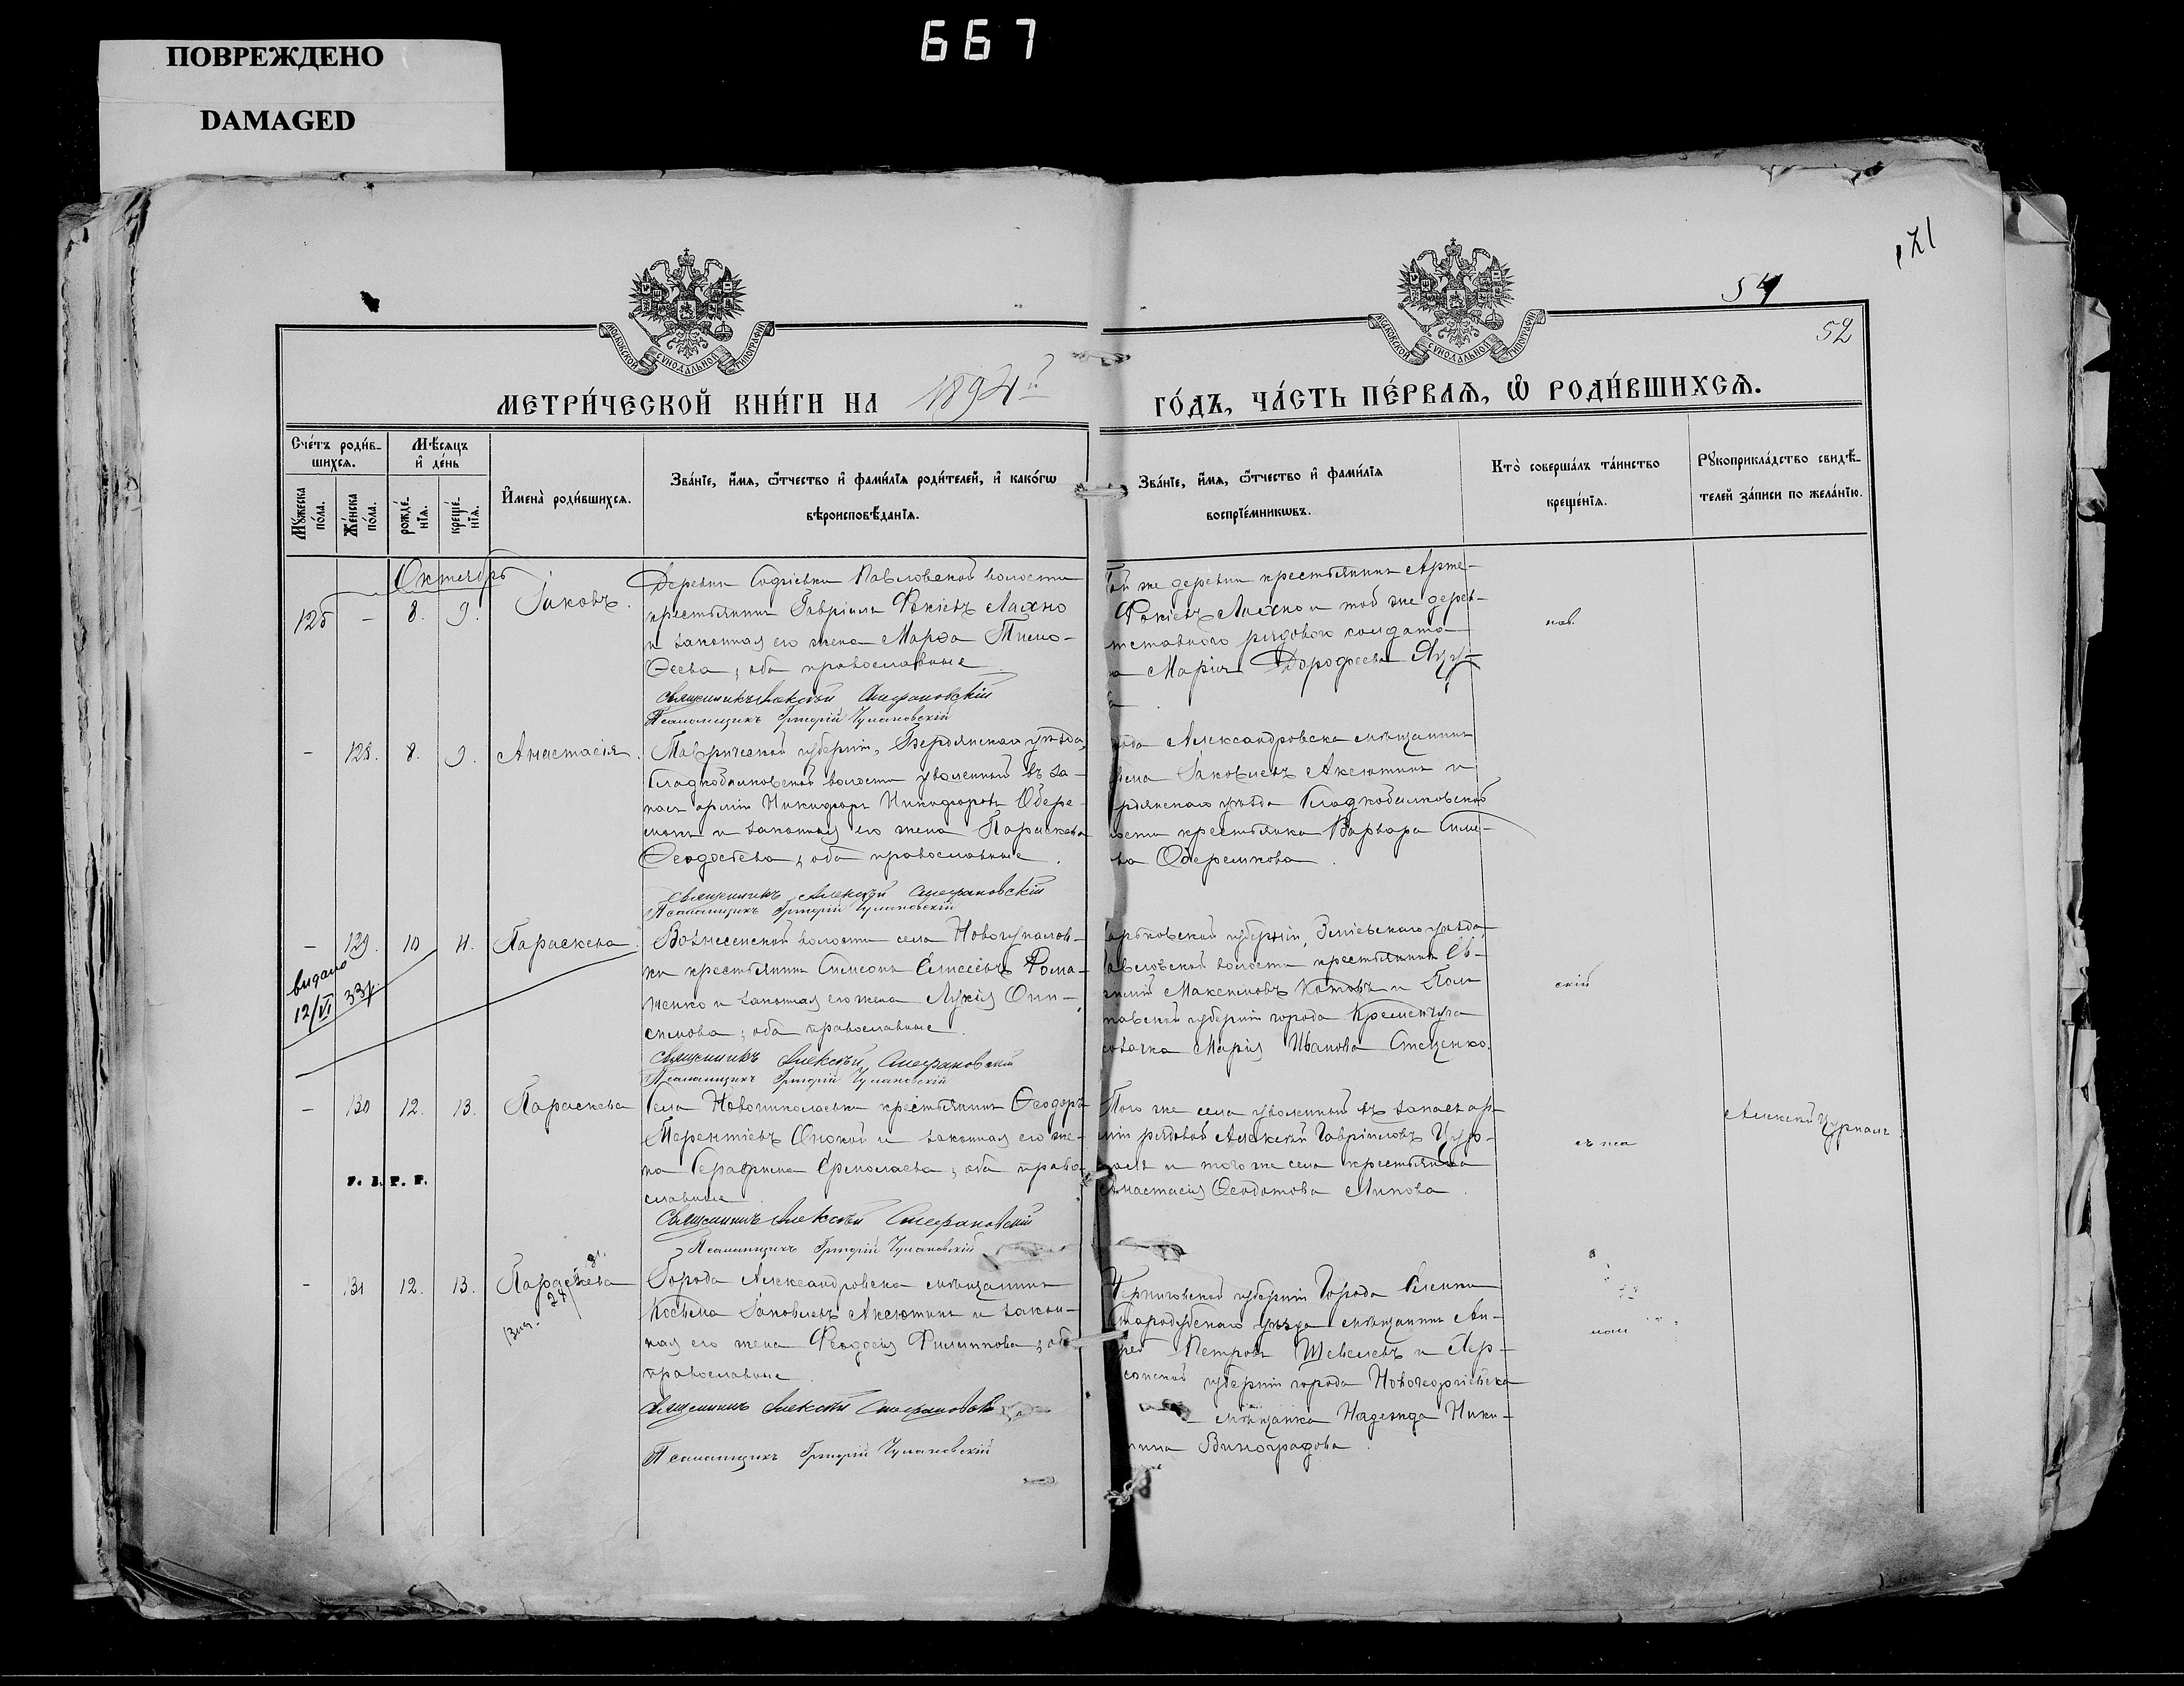 ПОВРЕЖДЕНО
DAMAGED
667
121
54
52
МОСКОВСКОЙ СѴНОДАЛЬНОЙ ТИПОГРАФІИ
МОСКОВСКОЙ СѴНОДАЛЬНОЙ ТИПОГРАФІИ
МЕТРИ́ЧЕСКОЙ КНИ́ГИ НА 1894й ГО́ДЪ, ЧА́СТЬ ПЕ́РВАѦ, Ѽ РОДИ́ВШИХСѦ.
Сче́тъ роди́в-
шихсѧ.
Мѣ́сѧцъ
и҆ де́нь
Мꙋ́жеска
по́ла.
Же́нска
по́ла.
рожде́-
нїѧ.
креще́-
нїѧ.
И҆мена̀ роди́вшихсѧ.
Зва́нїе, и҆́мѧ, ѻ҆́тчество и҆ фами́лїѧ роди́телей, и҆ како́гѡ
вѣроисповѣ́данїѧ.
Зва́нїе, и҆́мѧ, ѻ҆́тчество и҆ фами́лїѧ
воспрїе́мникѡвъ.
Кто̀ соверша́лъ та́инство
креще́нїѧ.
Рꙋкоприкла́дство свидѣ́-
телей за́писи по жела́нїю.
Октябрь
125 - 8. 9. Іаковъ.
Деревни Софіевки Павловской волости
крестьянинъ Гавріилъ Фокіевъ Лахно
и законная его жена Марѳа Тимо-
ѳеева, оба православные
Священникъ Алексѣй Стефановскій
Псаломщикъ Григорій Чумановскій
той же деревни крестьянинъ Арте-
Фокіевъ Лахно и той же дерев-
отставного рядового солдата
Марія Дорофеева
- 128. 8. 9. Анастасія.
Таврической губерніи, Бердянскаго уѣзда,
волости уволенный въ за-
пасъ арміи Никифоръ Никифоровъ Обере-
мокъ и законная его жена Параскева
Ѳеодосѣева, оба православные.
Священникъ Алексѣй Стефановскій
Псаломщикъ Григорій Чумановскій
рода Александровска мѣщанинъ
Яковлевъ Аксютинъ и
рдянскаго уѣзда
ости крестьянка Варвара Симе-
ва Оберемкова.
- 129. 10 11. Параскева
видано
12/VI 33р.
Вознесенской волости села Новогупалов-
ки крестьянинъ Симеонъ Елисеевъ Рома-
ненко и законная его жена Лукія Они-
симова, оба православные.
Священникъ Алексѣй Стефановскій
Псаломщикъ Григорій Чумановскій
арьковской губерніи, Зміевскаго уѣзда
волости крестьянинъ Ев-
Максимовъ Котовъ и Пол-
тавской губерніи города Кременчуга
козачка Марія Иванова Стеценко.
скій
- 130 12. 13. Параскева
Села Новониколаевки крестьянинъ Ѳеодоръ
Терентіевъ и законная его же-
на Серафима Ермолаева, оба право-
славные.
Священникъ Алексѣй Стефановскій
Псаломщикъ Григорій Чумановскій
Того же села уволенный въ запасъ ар-
міи рядовой Алексѣй Гавріиловъ Цур-
и того же села крестьянка
Анастасія Ѳеодотова Липова.
- 131 12. 13. Параскева
Города Александровска мѣщанинъ
Косьма Яковлевъ Аксютинъ и закон-
ная его жена Феодосія Филиппова, оба
православные.
Священникъ Алексѣй Стефановскій
Псаломщикъ Григорій Чумановскій
Черниговской губерніи Города
Стародубскаго уѣзда мѣщанинъ Ан-
дрей Петровъ Шевелевъ и Хер-
сонской губерніи города Новогеоргіевска
мѣщанка Надежда Ники-
тина Виноградова.